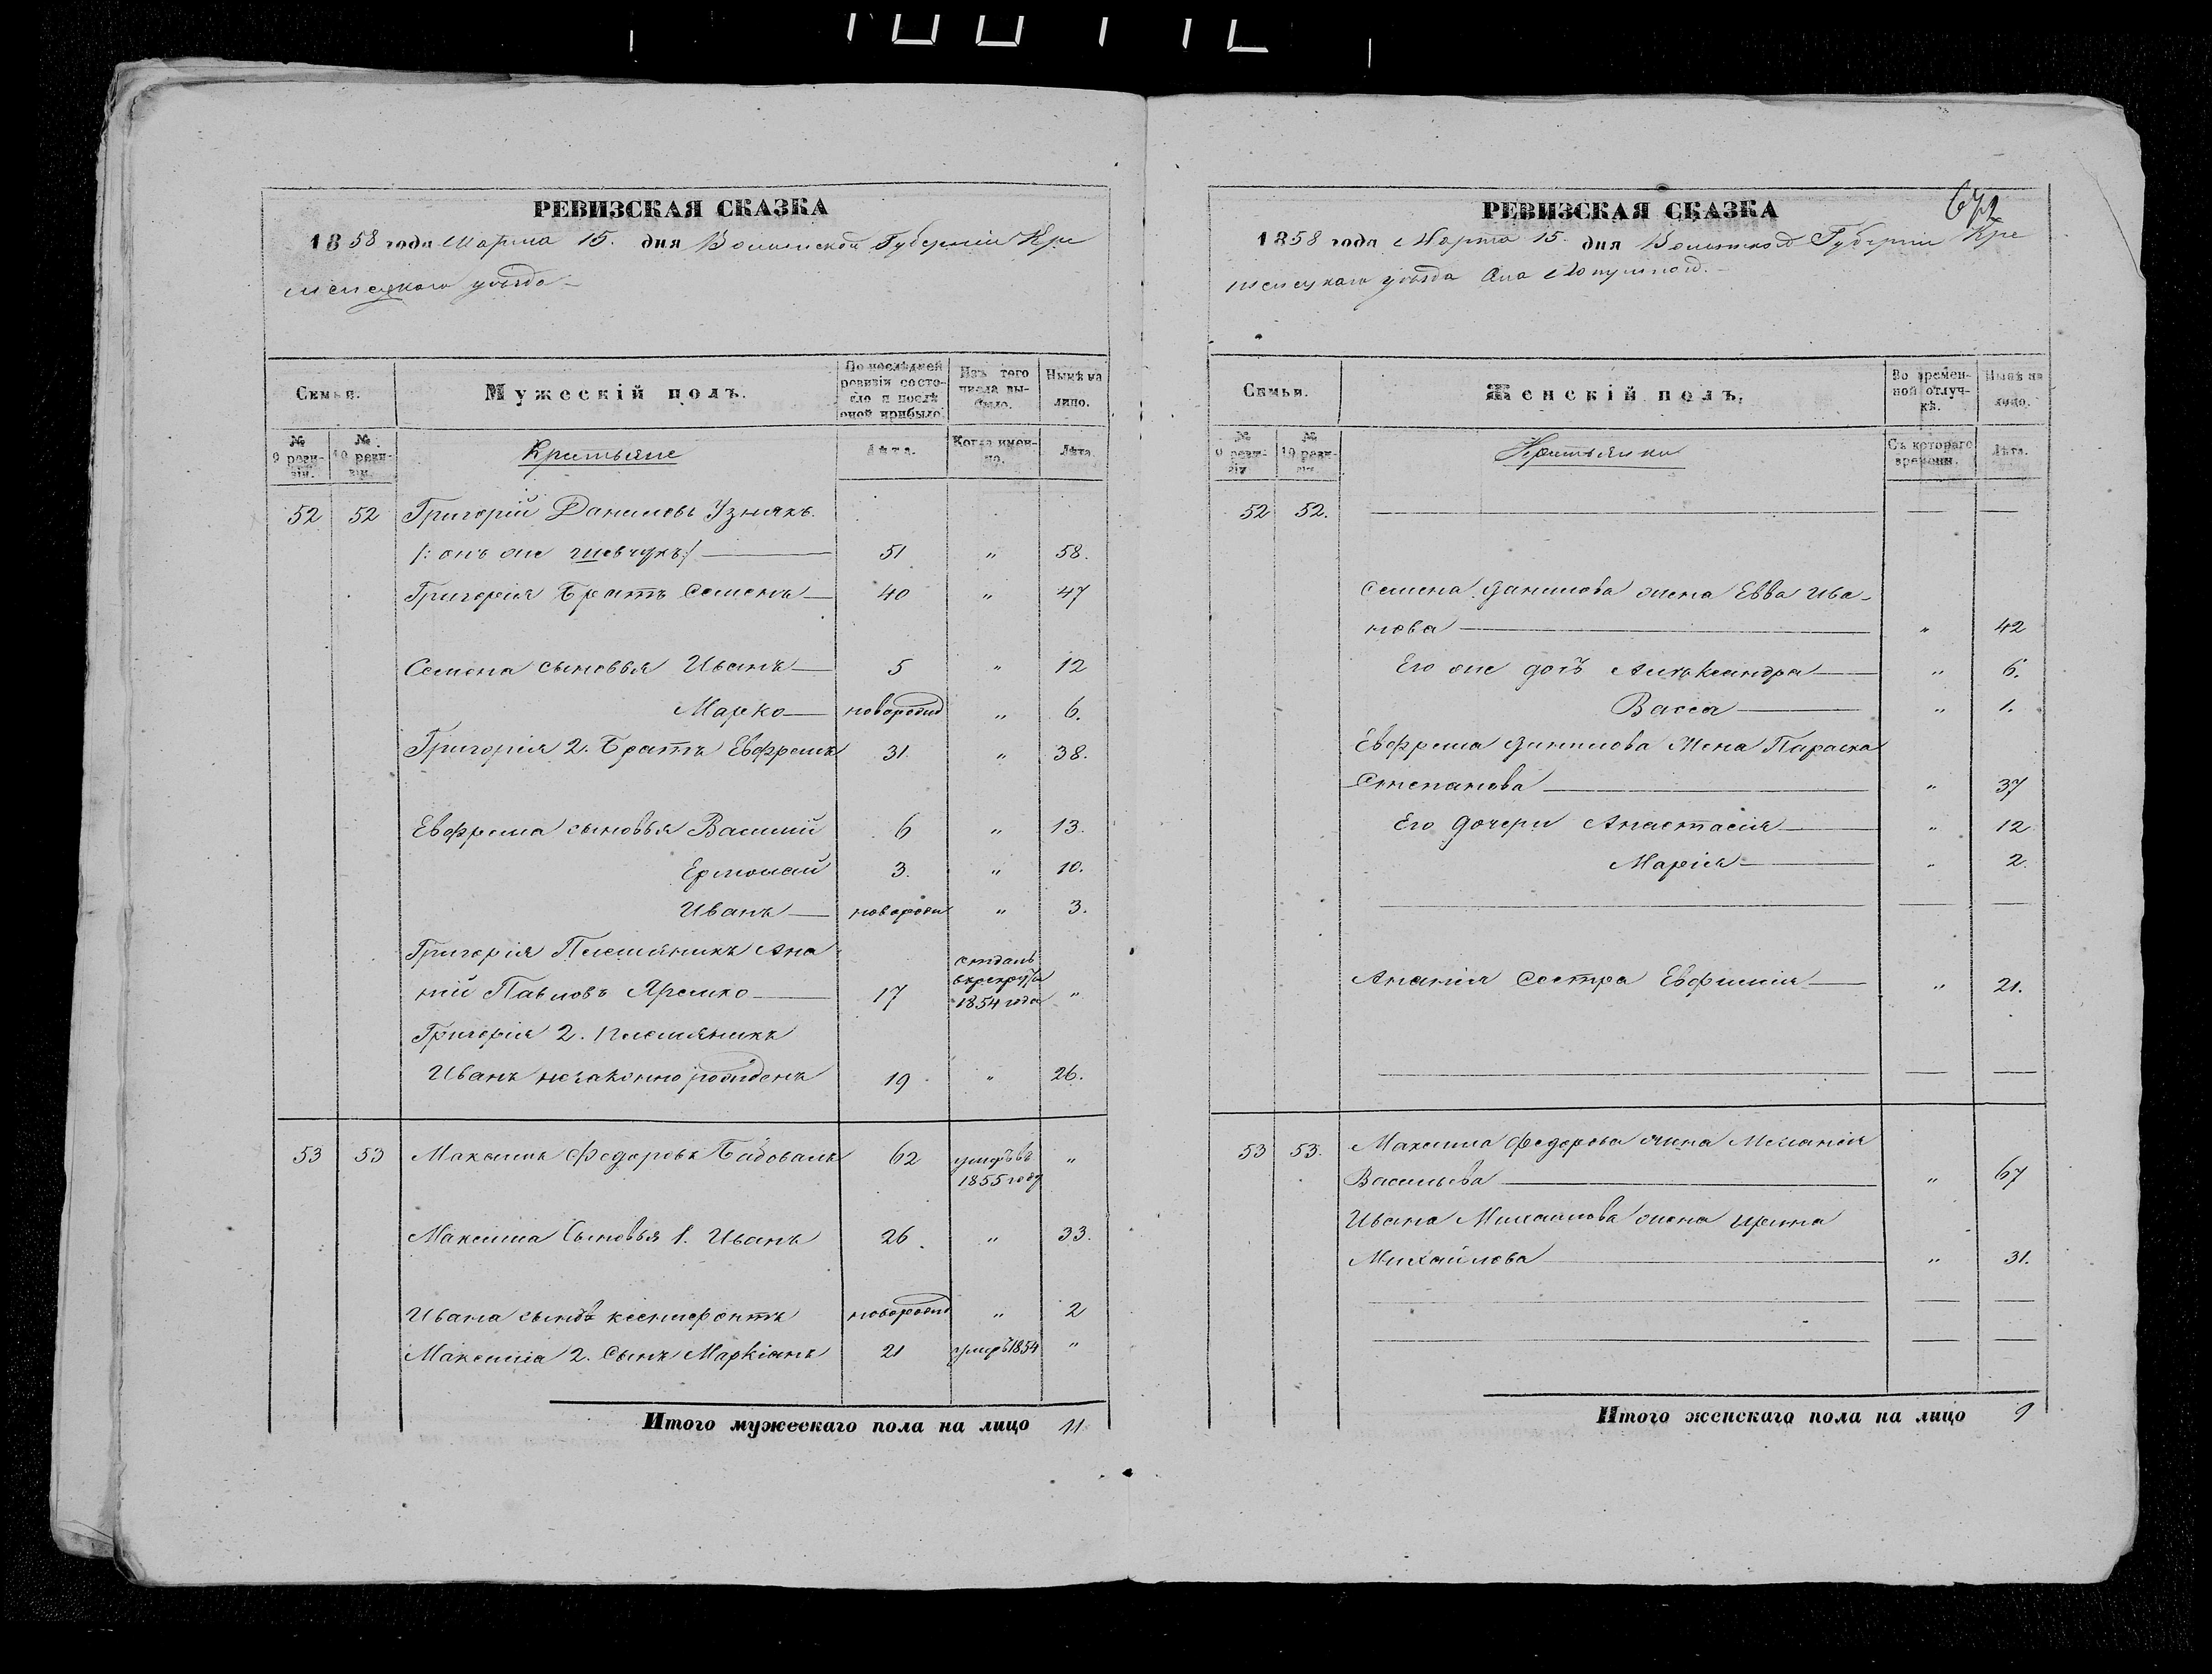 РЕВИЗСКАЯ СКАЗКА
1858 года Марта 15. дня Волынской Губерніи Кре
менецкаго уѣзда
Семьи.
Мужескій полъ.
По послѣдней ревизіи состояло и послѣ оной прибыло.
Изъ того числа выбыло.
Нынѣ на лицо.
№ 9 ревизіи.
№ 10 ревизіи.
Крестьяне
Лѣта.
Когда именно.
Лѣта.
52 52 Григорій Даниловъ Узнякъ
/: онъ же Шевчукъ :/ 51 " 58.
Григорія Братъ Семенъ 40 " 47
Семена сыновья Иванъ 5 " 12
Марко новорожд " 6.
Григорія 2. Братъ Евфремъ 31 " 38.
Евфрема сыновья Василій 6 " 13.
Ермолай 3. " 10.
Иванъ новорожд " 3.
Григорія Племянникъ Ана
ній Павловъ Яремко 17 отданъ в рекруты 1854 года "
Григорія 2. племянникъ
Иванъ незаконно рожденъ 19 " 26.
53 53 Максимъ Федоровъ 62 умеръ въ 1855 году "
Максима Сыновья 1. Иванъ 26 " 33.
Ивана сынъ Ксенофонтъ новорожд " 2
Максима 2. Сынъ Маркіанъ 21 умеръ 1854 "
Итого мужескаго пола на лицо 11
РЕВИЗСКАЯ СКАЗКА
1858 года Марта 15. дня Волынской Губерніи Кре
менецкаго уѣзда Села Лопушной.
Семьи.
Женскій полъ.
Во временной отлучкѣ.
Нынѣ на лицо.
№ 9 ревизіи
№ 10 ревизіи.
Крестьянки
Съ котораго времени.
Лѣта.
52 52.
Семена Данилова жена Евва Ива-
нова " 42
Его же дочь Александра " 6.
Васса " 1.
Евфрема Данилова Жена Параска
Степанова " 37
Его Дочери Анастасія " 12
Марія " 2.
Ананія Сестра Евфимія " 21.
53 53. Максима Федорова жена Меланія
Васильева " 67
Ивана Михайлова жена Ирина
Михайлова " 31.
Итого женскаго пола на лицо 9